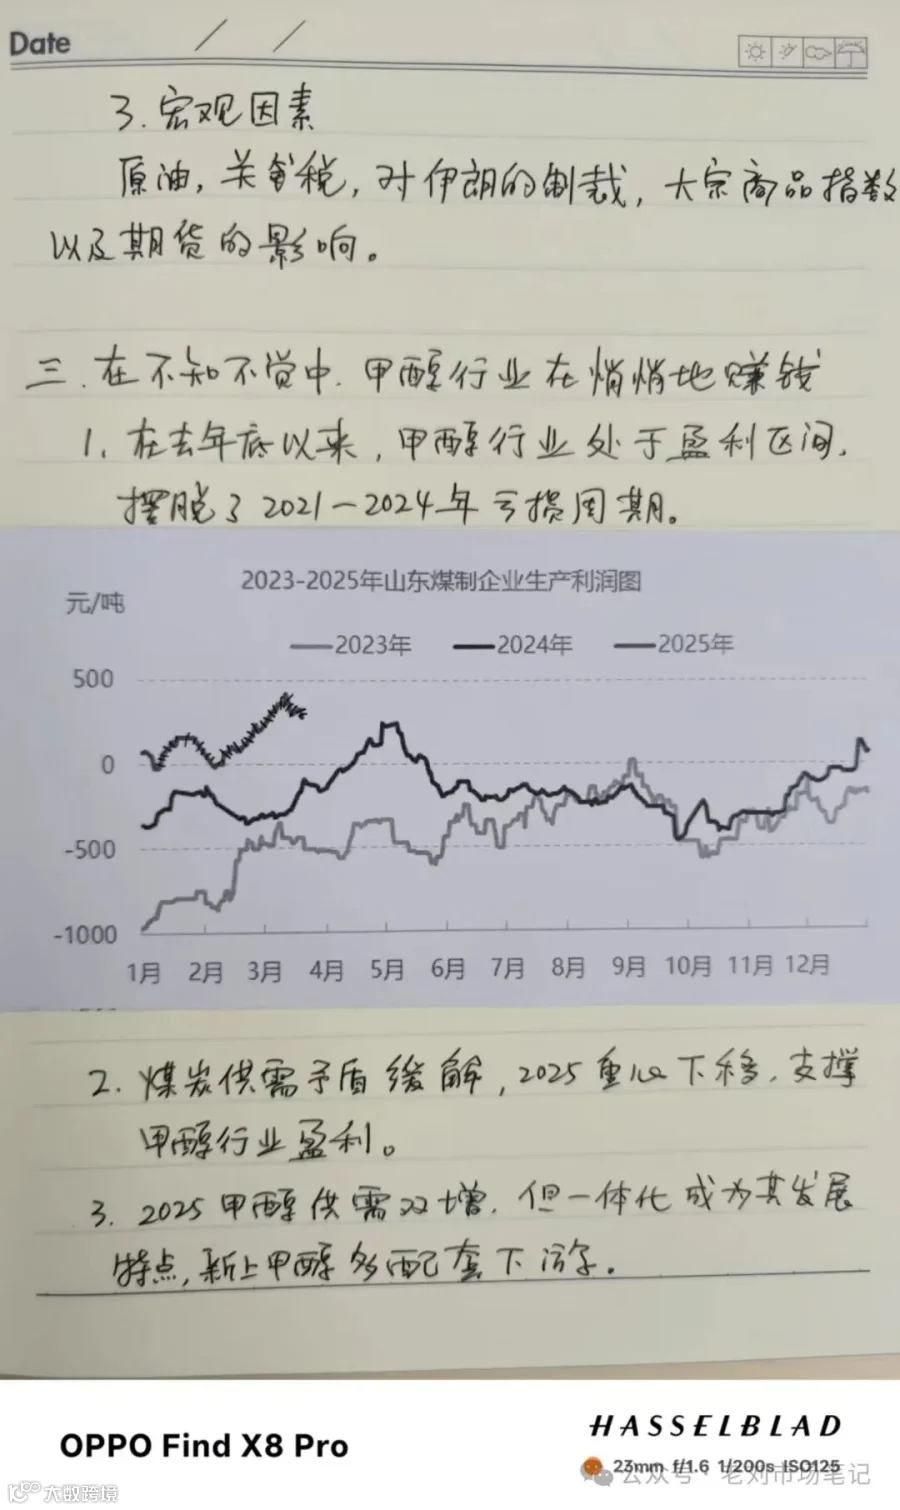 Date / /
3. 宏观因素
原油, 关省税, 对伊朗的制裁, 大宗商品指数
以及期货的影响。
三. 在不知不觉中. 甲醇行业在悄悄地赚钱
1. 在去年底以来, 甲醇行业处于盈利区间.
摆脱了2021-2024年亏损周期。
2023-2025年山东煤制企业生产利润图
元/吨
2023年 2024年 2025年
500
0
-500
-1000
1月 2月 3月 4月 5月 6月 7月 8月 9月 10月 11月 12月
2. 煤炭供需矛盾缓解, 2025重心下移. 支撑
甲醇行业盈利。
3. 2025甲醇供需双增. 但一体化成为其发展
特点, 新上甲醇多配套下游.
OPPO Find X8 Pro
HASSELBLAD
23mm f/1.6 1/200s ISO125
公众号 · 老刘市场笔记
大数跨境